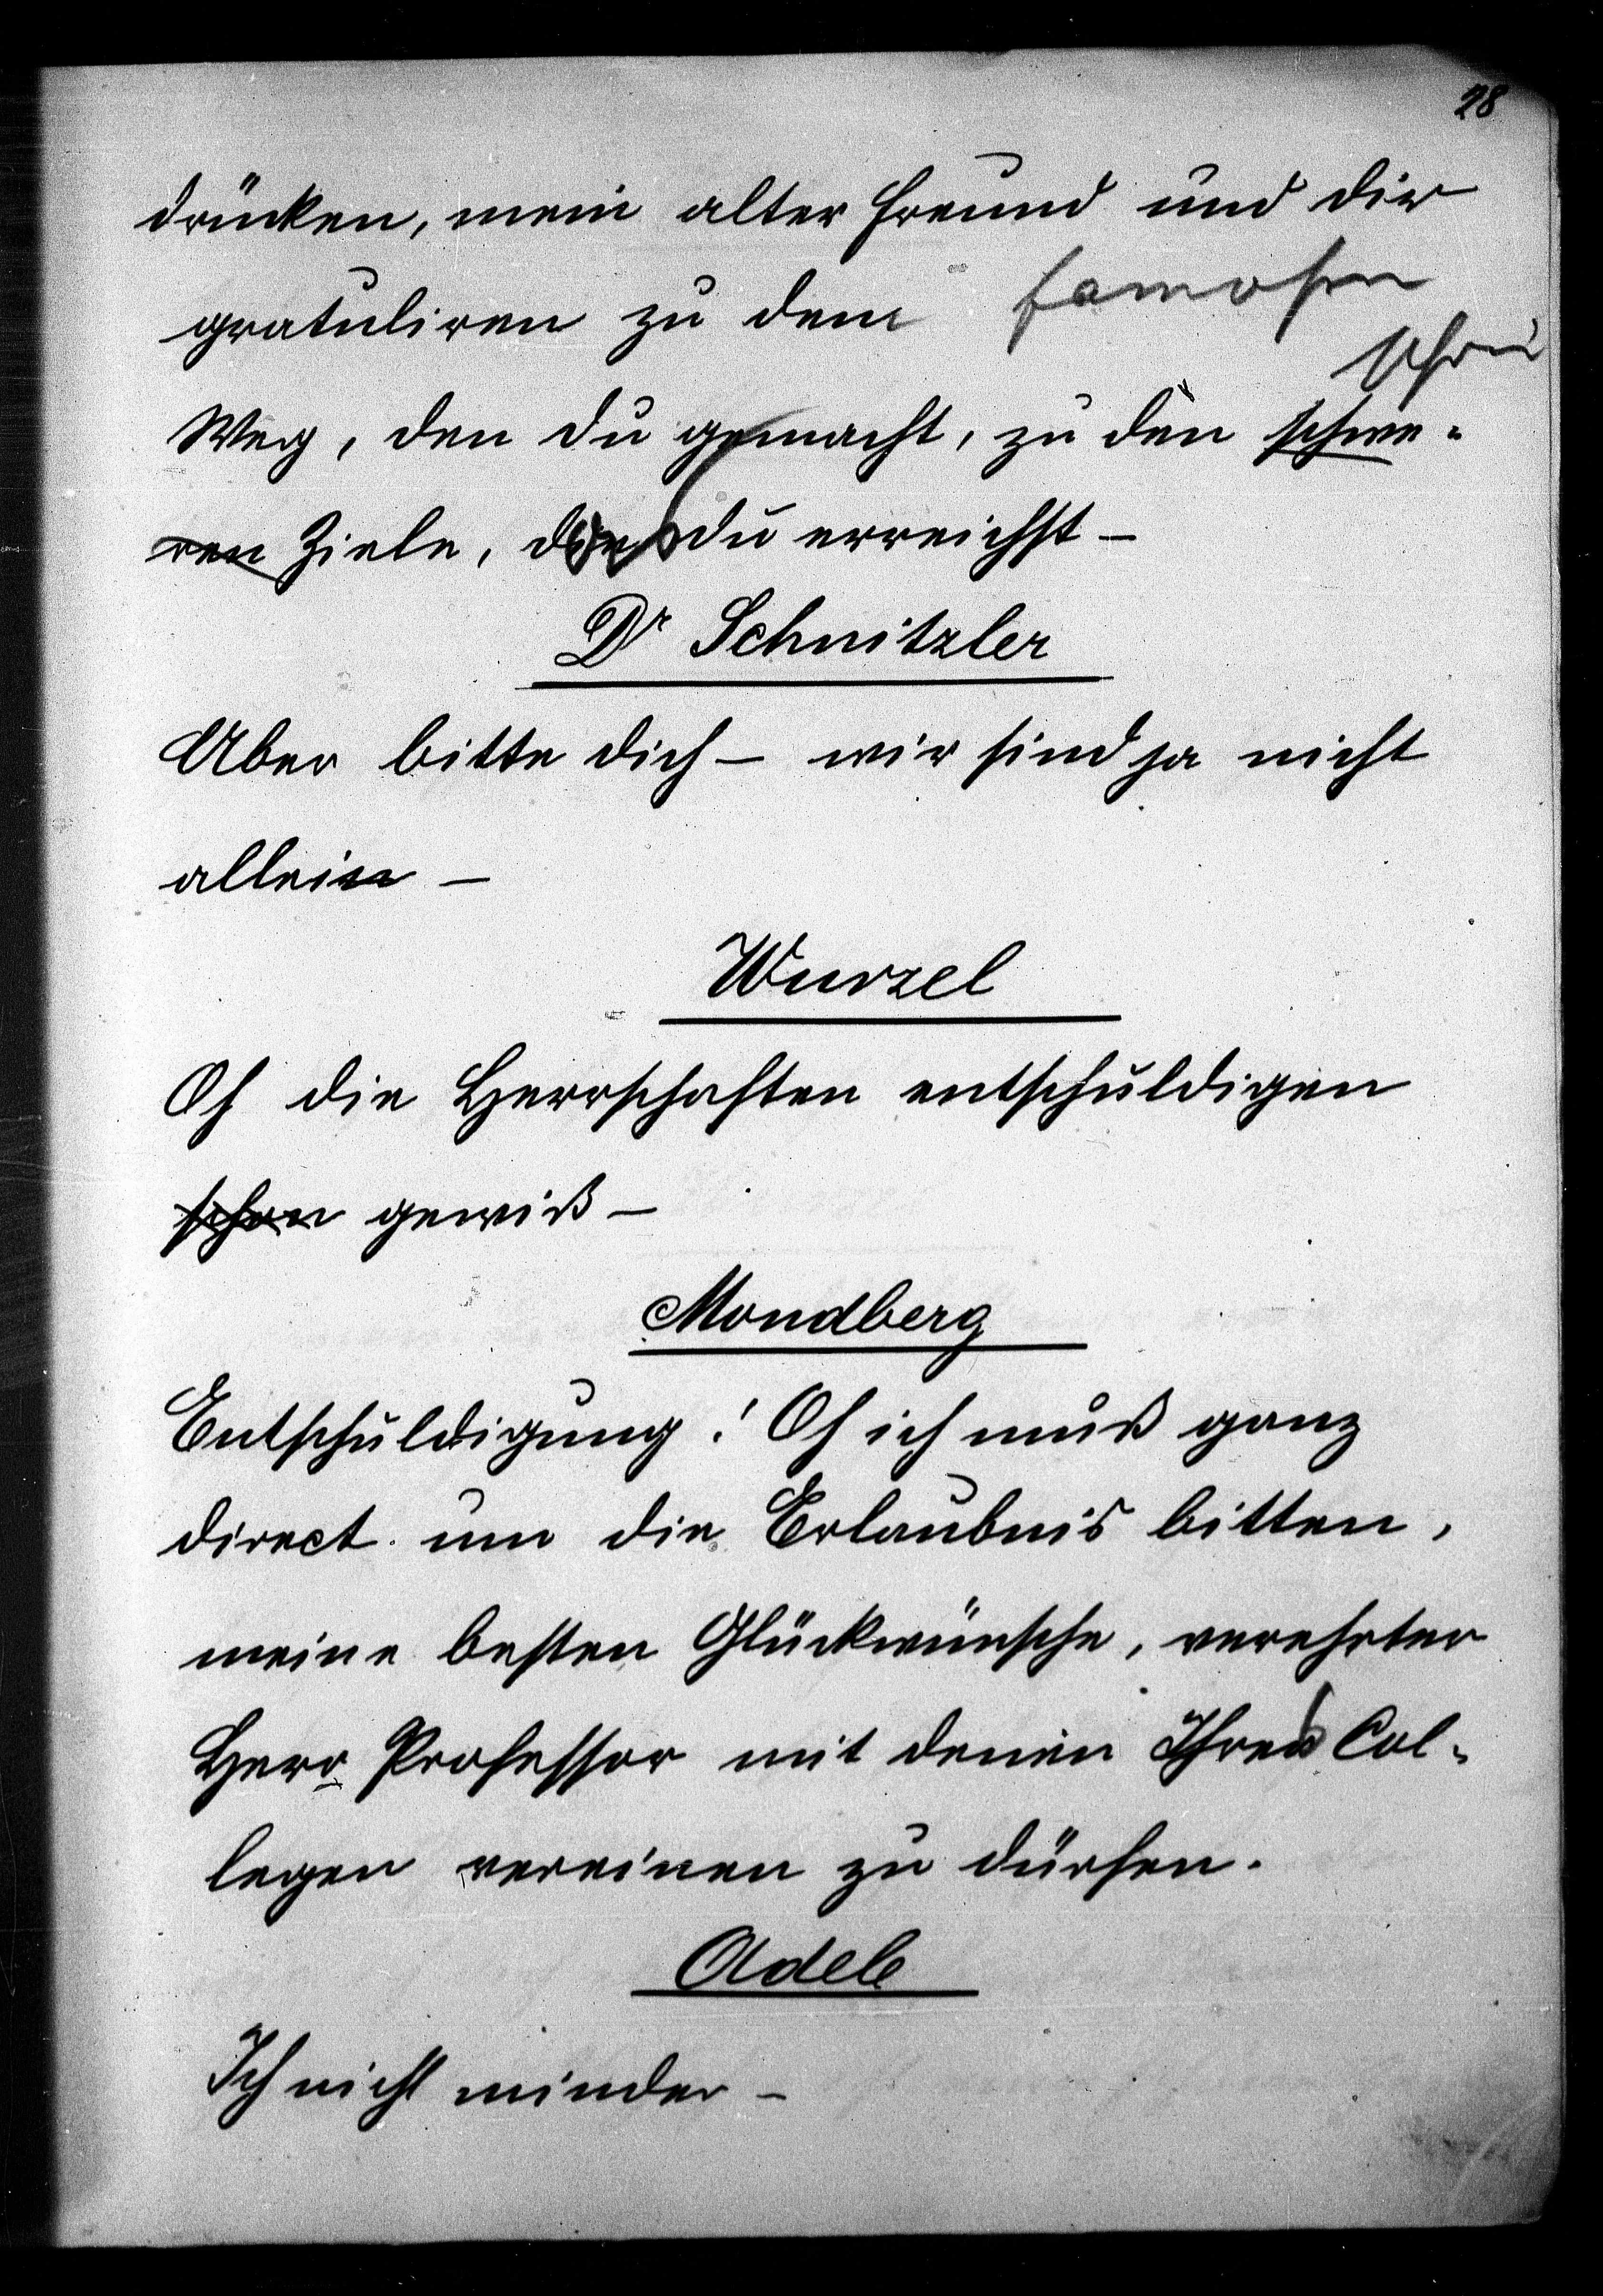 28
drücken, mein alter Freund und dir
gratuliren zu dem famosen
Weg, den du gemacht, zu den schwe-
ren Ziele, du erreichst –
Dr Schnitzler
Aber bitte dich – wir sind ja nicht
allein –
Wurzel
Oh die Herrschaften entschuldigen
schon gewiß –
Mondberg
Entschuldigung! Oh ich muß ganz
direct um die Erlaubnis bitten,
meine besten Glückwünsche, verehrter
Herr Professor mit denen Ihres Col-
legen vereinen zu dürfen.
Adele
Ich nicht minder –